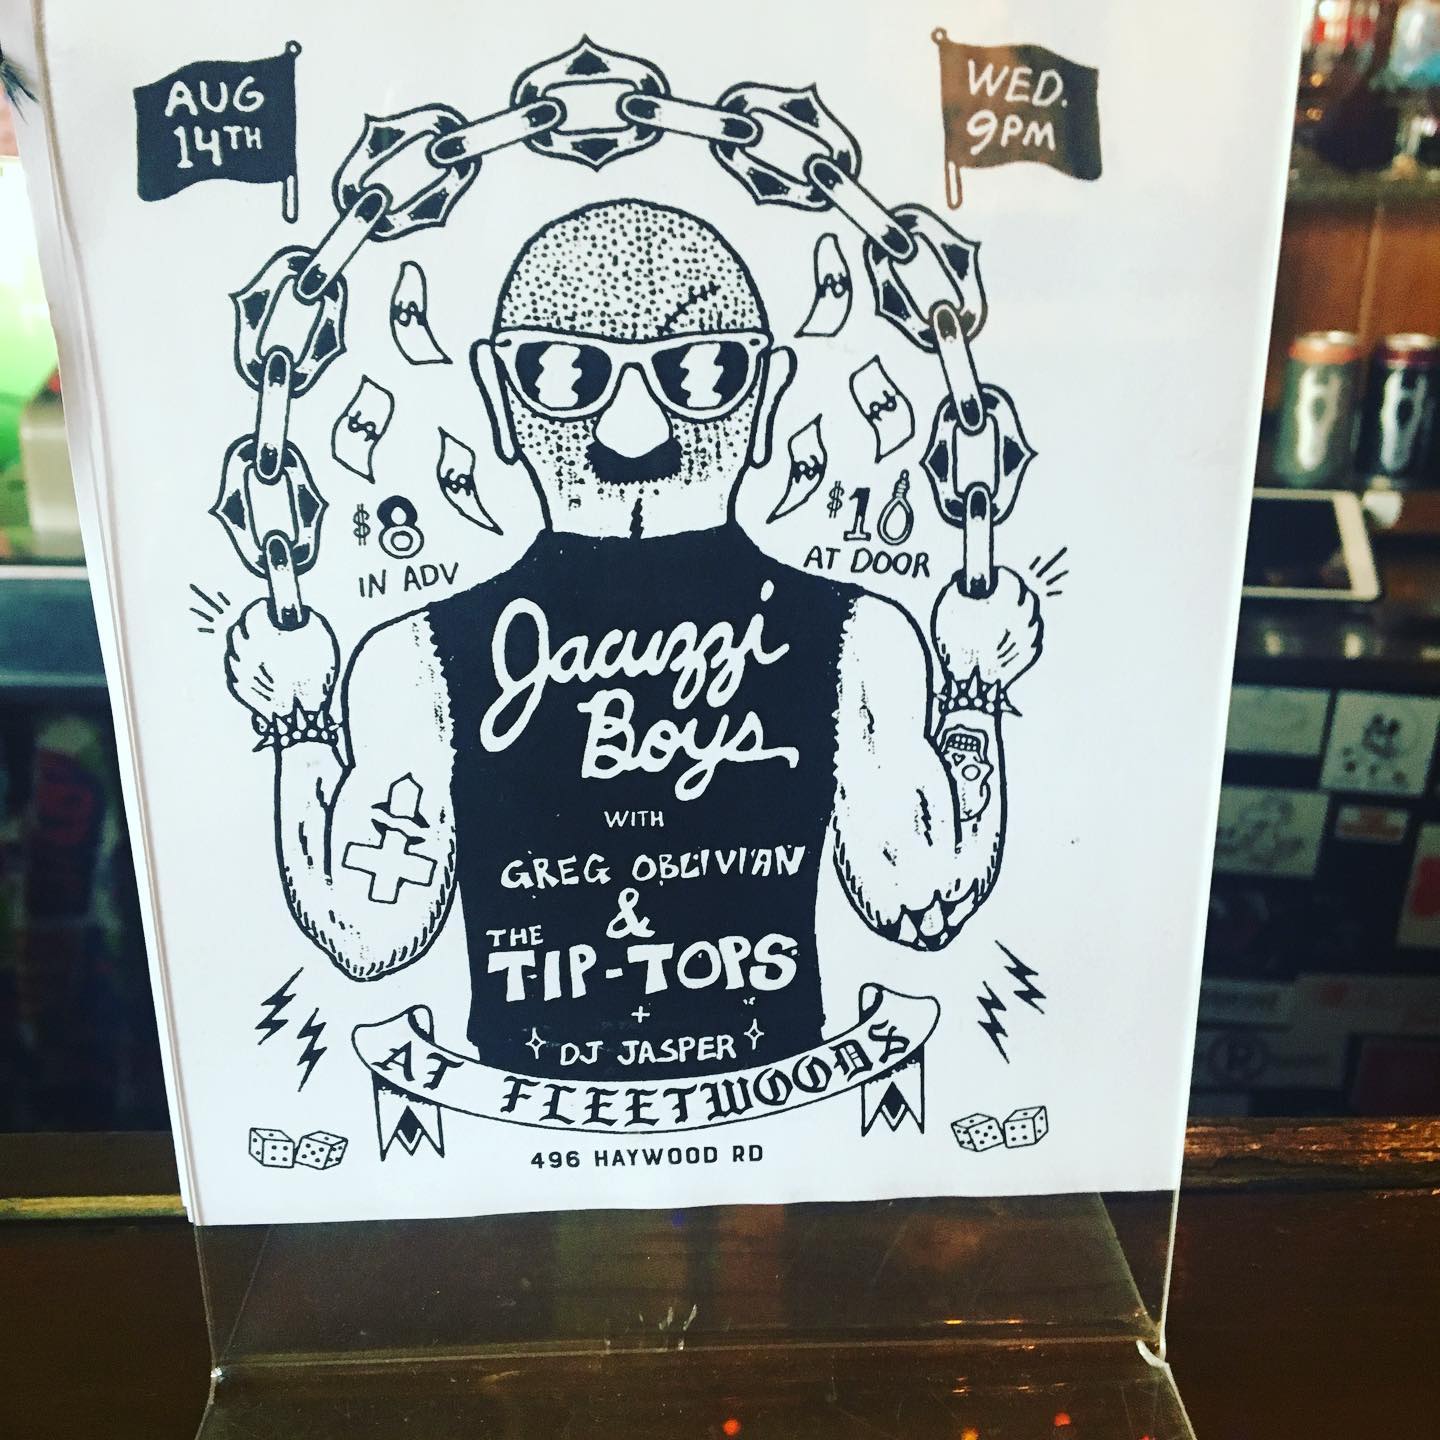 AUG
14TH
WED.
9PM
$8
IN ADV
$10
AT DOOR
Jacuzzi
Boys
WITH
GREG OBLIVIAN
&
THE
TIP-TOPS
+
DJ JASPER
AT FLEETWOODS
496 HAYWOOD RD